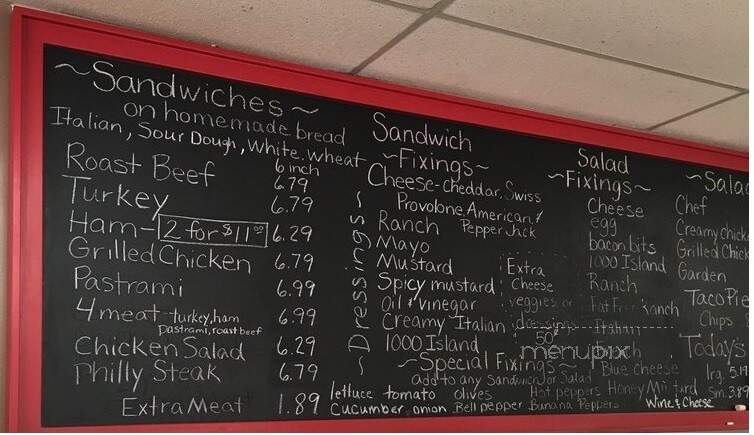 ~Sandwiches~
on homemade bread
Italian, Sour Dough, White, wheat
6 inch
Roast Beef 6.79
Turkey 6.79
Ham- 2 for $11.00 6.29
Grilled Chicken 6.79
Pastrami 6.99
4 meat - turkey, ham 6.99
pastrami, roast beef
Chicken Salad 6.29
Philly Steak 6.79
Extra Meat 1.89
Sandwich
~Fixings~
Cheese-cheddar, Swiss
Provolone, American, &
Pepper Jack
~Dressings~
Ranch
Mayo
Mustard
Spicy mustard
Oil & Vinegar
Creamy Italian
1000 Island
Extra
Cheese
veggies or
dressings
50¢
~Special Fixings~
add to any Sandwich or Salad
lettuce tomato olives Hot peppers
Cucumber onion Bell pepper Banana Peppers
Salad
~Fixings~
Cheese
egg
bacon bits
1000 Island
Ranch
Fat Free Ranch
Italian
Blue cheese
Honey Mustard
Wine & Cheese
~Sala
Chef
Creamy chick
Grilled Chick
Garden
Taco Pie
Chips
Todays
lrg. 5.19
Sm. 3.89
menupix